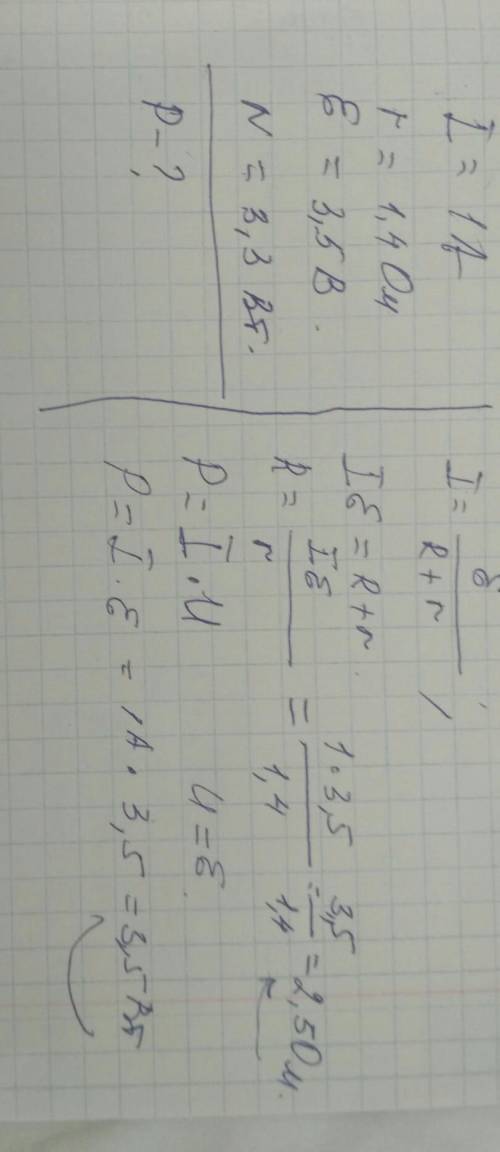 I = 1A
r = 1,4 Ом
ℰ = 3,5 В.
N = 3,3 Вт.
P - ?
I = ℰ / (R + r) ;
Iℰ = R + r.
R = Iℰ / r = 1·3,5 / 1,4 = 3,5 / 1,4 = 2,5 Ом.
P = I · U U = ℰ.
P = I · ℰ = 1А · 3,5 = 3,5 Вт